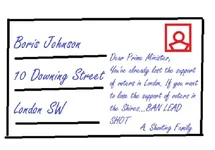 Boris Johnson
10 Downing Street
London SW
Dear Prime Minister,
You've already lost the support
of voters in London. If you want
to lose the support of voters in
the Shires...BAN LEAD
SHOT
A. Shooting Family